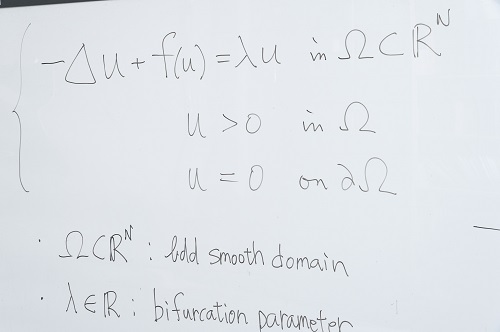 -Δu + f(u) = λu in Ω ⊂ ℝᴺ
u > 0 in Ω
u = 0 on ∂Ω
· Ω ⊂ ℝᴺ : bdd smooth domain
· λ ∈ ℝ : bifurcation parameter